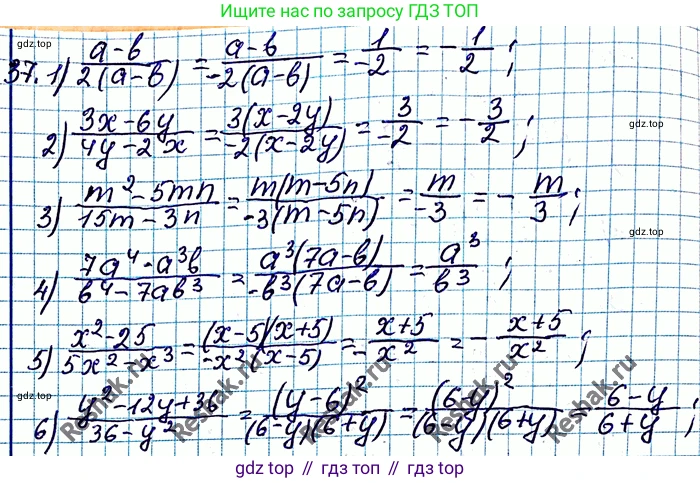 Ищите нас по запросу ГДЗ ТОП
37. 1) (a-b)/(2(a-b)) = (a-b)/(-2(a-b)) = 1/(-2) = -1/2;
gdz.top
gdz.top
2) (3x-6y)/(4y-2x) = (3(x-2y))/(-2(x-2y)) = 3/(-2) = -3/2;
gdz.top
3) (m²-5mn)/(15m-3n) = (m(m-5n))/(-3(m-5n)) = m/(-3) = -m/3;
gdz.top
gdz.top
4) (7a⁴-a³b)/(b⁴-7ab³) = (a³(7a-b))/(-b³(7a-b)) = a³/b³;
5) (x²-25)/(5x²-x³) = ((x-5)(x+5))/(-x²(x-5)) = (x+5)/(-x²) = -(x+5)/x²;
6) (y²-12y+36)/(36-y²) = (y-6)²/((6-y)(6+y)) = (6-y)²/((6-y)(6+y)) = (6-y)/(6+y);
Reshak.ru
Reshak.ru
Reshak.ru
Reshak.ru
gdz.top // гдз.топ // gdz.top // гдз.топ